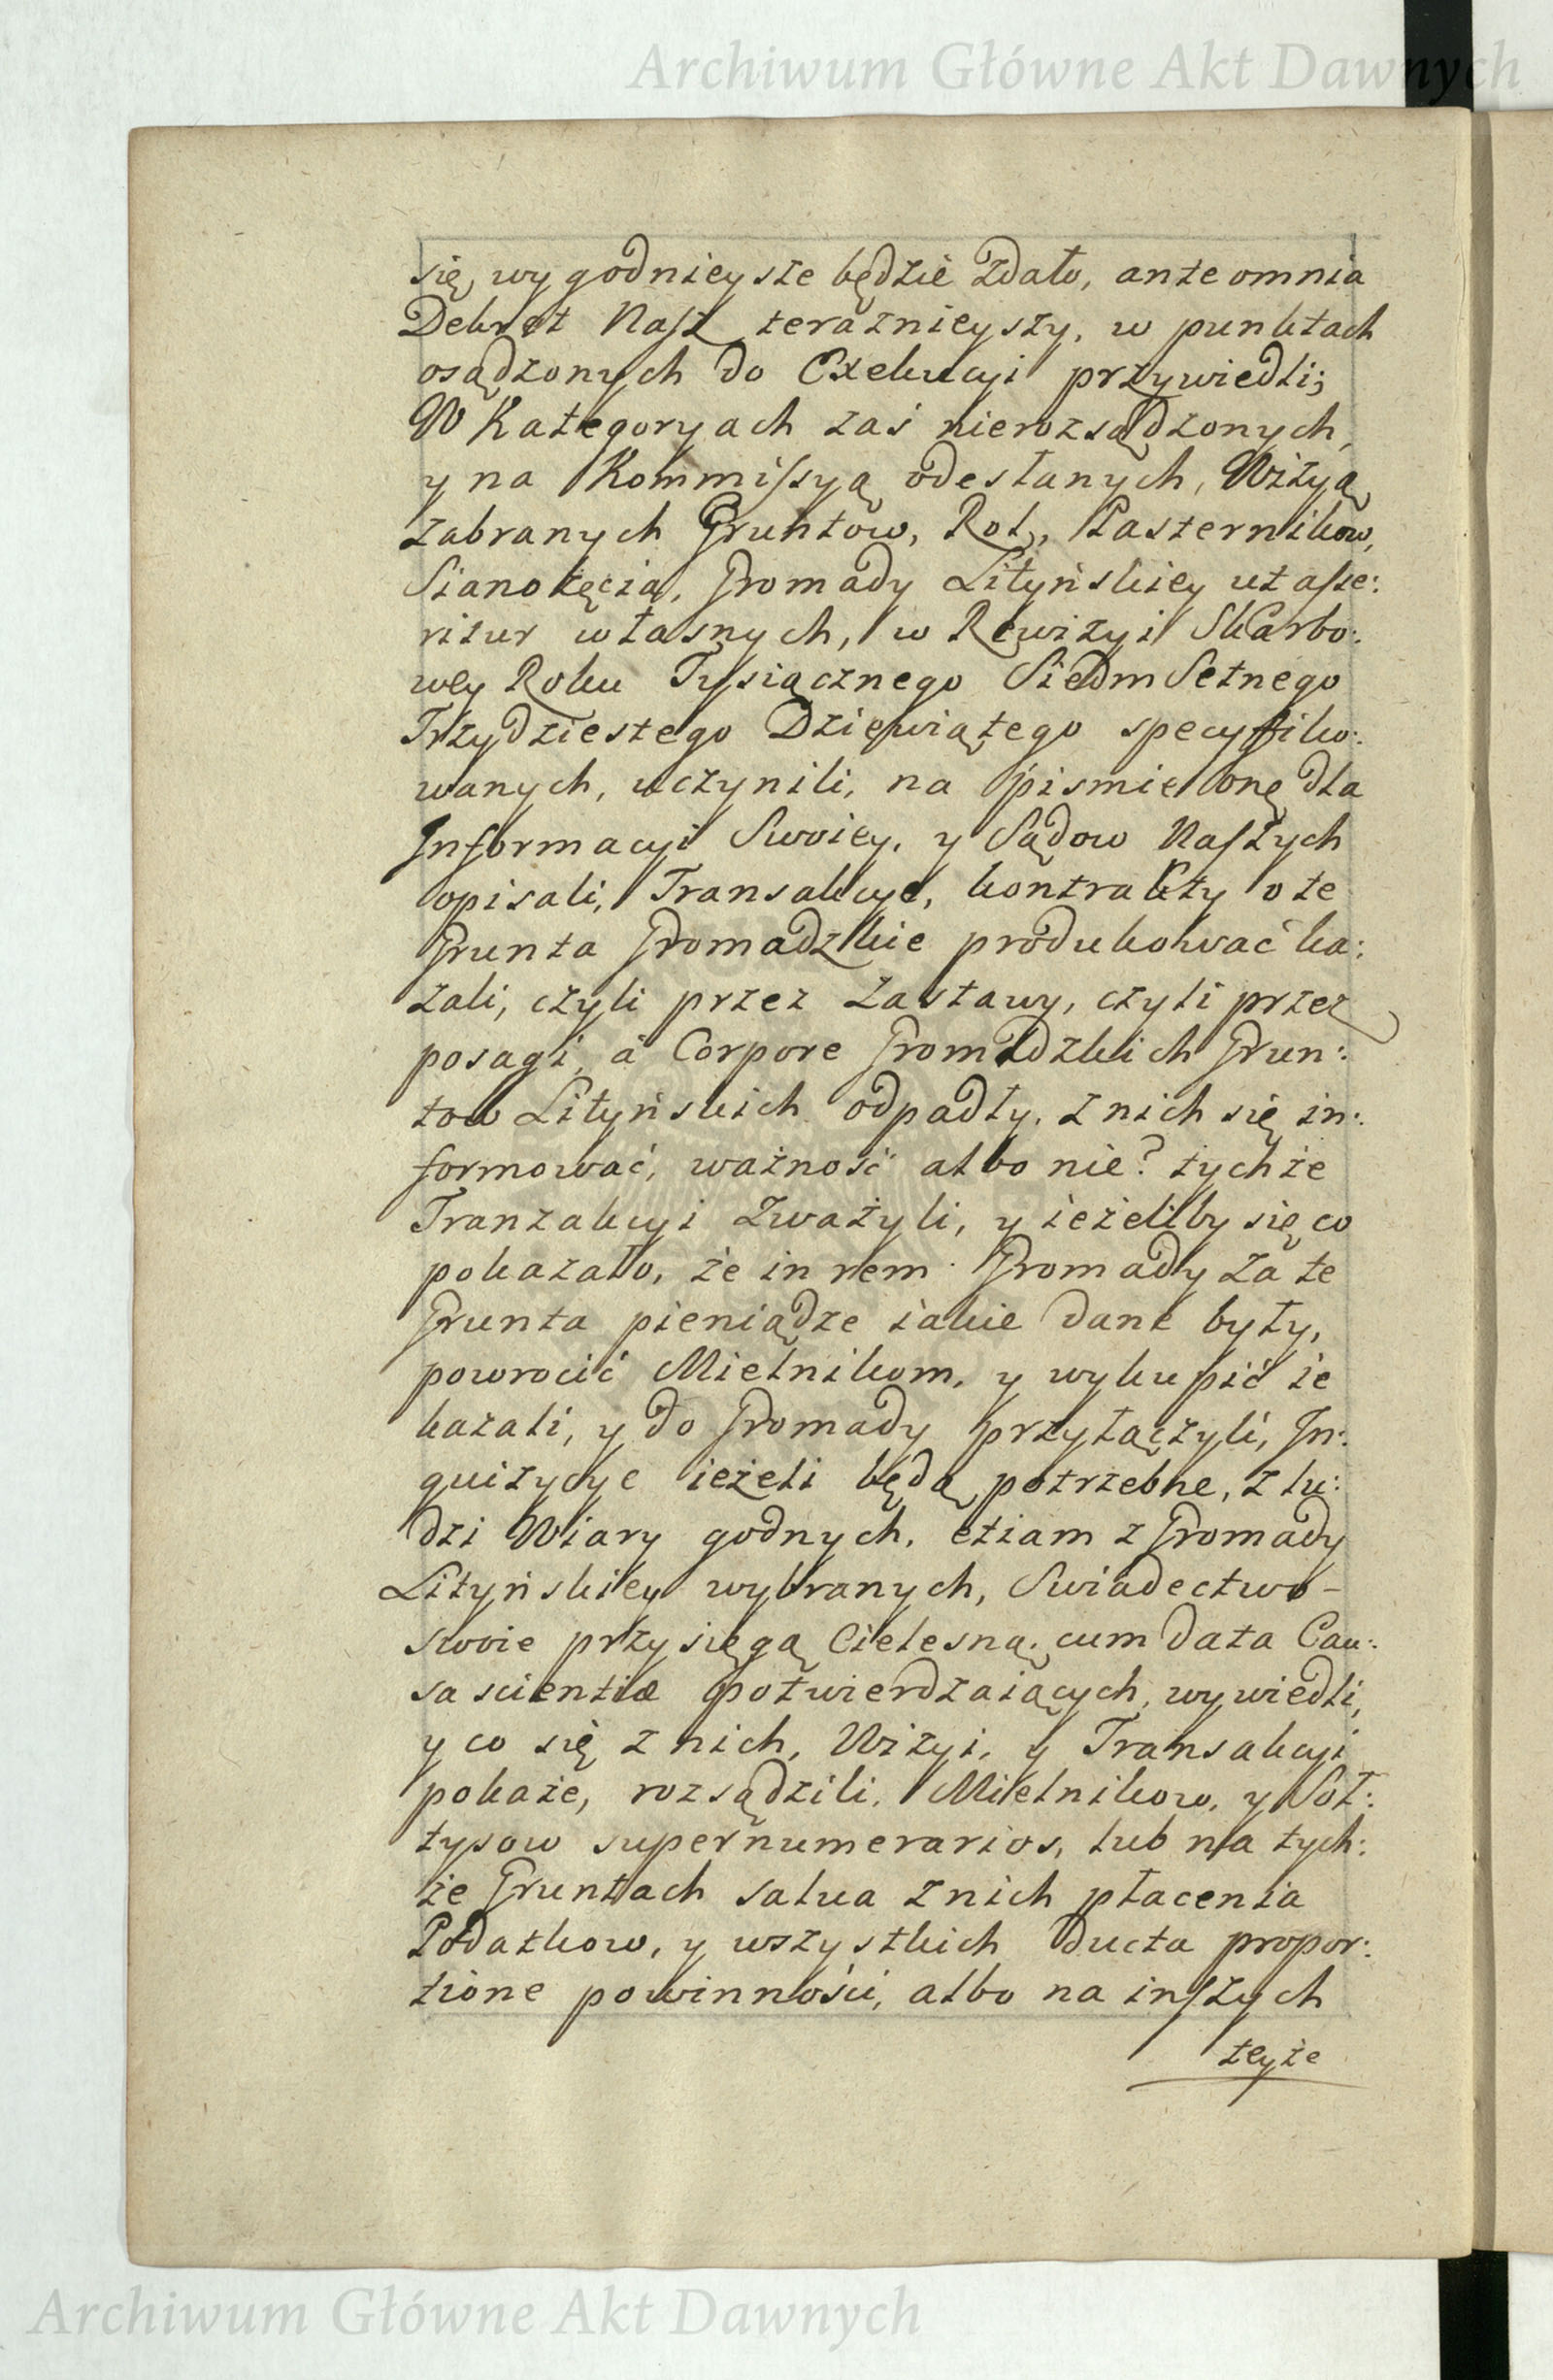 Archiwum Główne Akt Dawnych
się, wygodnieysze będzie zdało, ante omnia
Dekret Nasz teraznieyszy, w punktach
osądzonych do Exekucyi przywiedli;
W Kategoryach zaś nierozsądzonych,
y na Kommissyą odesłanych, Wizyą
zabranych Gruntow, Rol, Pasternikow,
Sianożęcia, Gromady Lityńskiey ut asse:
ritur własnych, w Rewizyi Skarbo:
wey Roku Tysiącznego Siedmsetnego
Trzydziestego Dziewiątego specyfiko:
wanych, uczynili, na pismie onę dla
Informacyi Swoiey, y Sądow Naszych
opisali, Transakcye, kontrakty o te
Grunta Gromadzkie produkować ka:
zali, czyli przez Zastawy, czyli przez
posagi, à Corpore Gromadzkich Grun:
tow Lityńskich odpadły, z nich się in:
formować, ważność albo nie? tychże
Tranzakcyi Zważyli, y ieżeliby się co
pokazało, że in rem Gromady za te
Grunta pieniądze iakie dane były,
powrocić Mielnikom, y wykupić ie
kazali, y do Gromady przyłączyli, In:
quizycye ieżeli będą potrzebne, z lu:
dzi Wiary godnych, etiam z Gromady
Lityńskiey wybranych, Swiadectwo-
swoie przysięgą Cielesną, cum data Cau:
sa scientiæ potwierdzaiących, wywiedli,
y co się z nich, Wizyi, y Transakcyi
pokaże, rozsądzili, Mielnikow, y Soł:
tysow supernumerarios, lub na tych:
że Gruntach salva z nich płacenia
Podatkow, y wszystkich ducta propor:
tione powinności, albo na inszych
teyże
Archiwum Główne Akt Dawnych